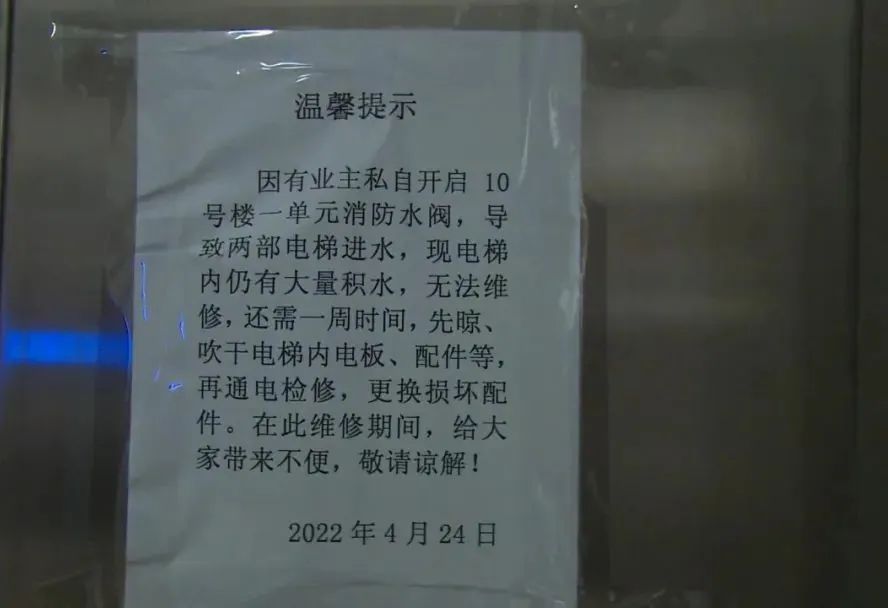 温馨提示
因有业主私自开启 10
号楼一单元消防水阀，导
致两部电梯进水，现电梯
内仍有大量积水，无法维
修，还需一周时间，先晾、
吹干电梯内电板、配件等，
再通电检修，更换损坏配
件。在此维修期间，给大
家带来不便，敬请谅解！
2022 年 4 月 24 日